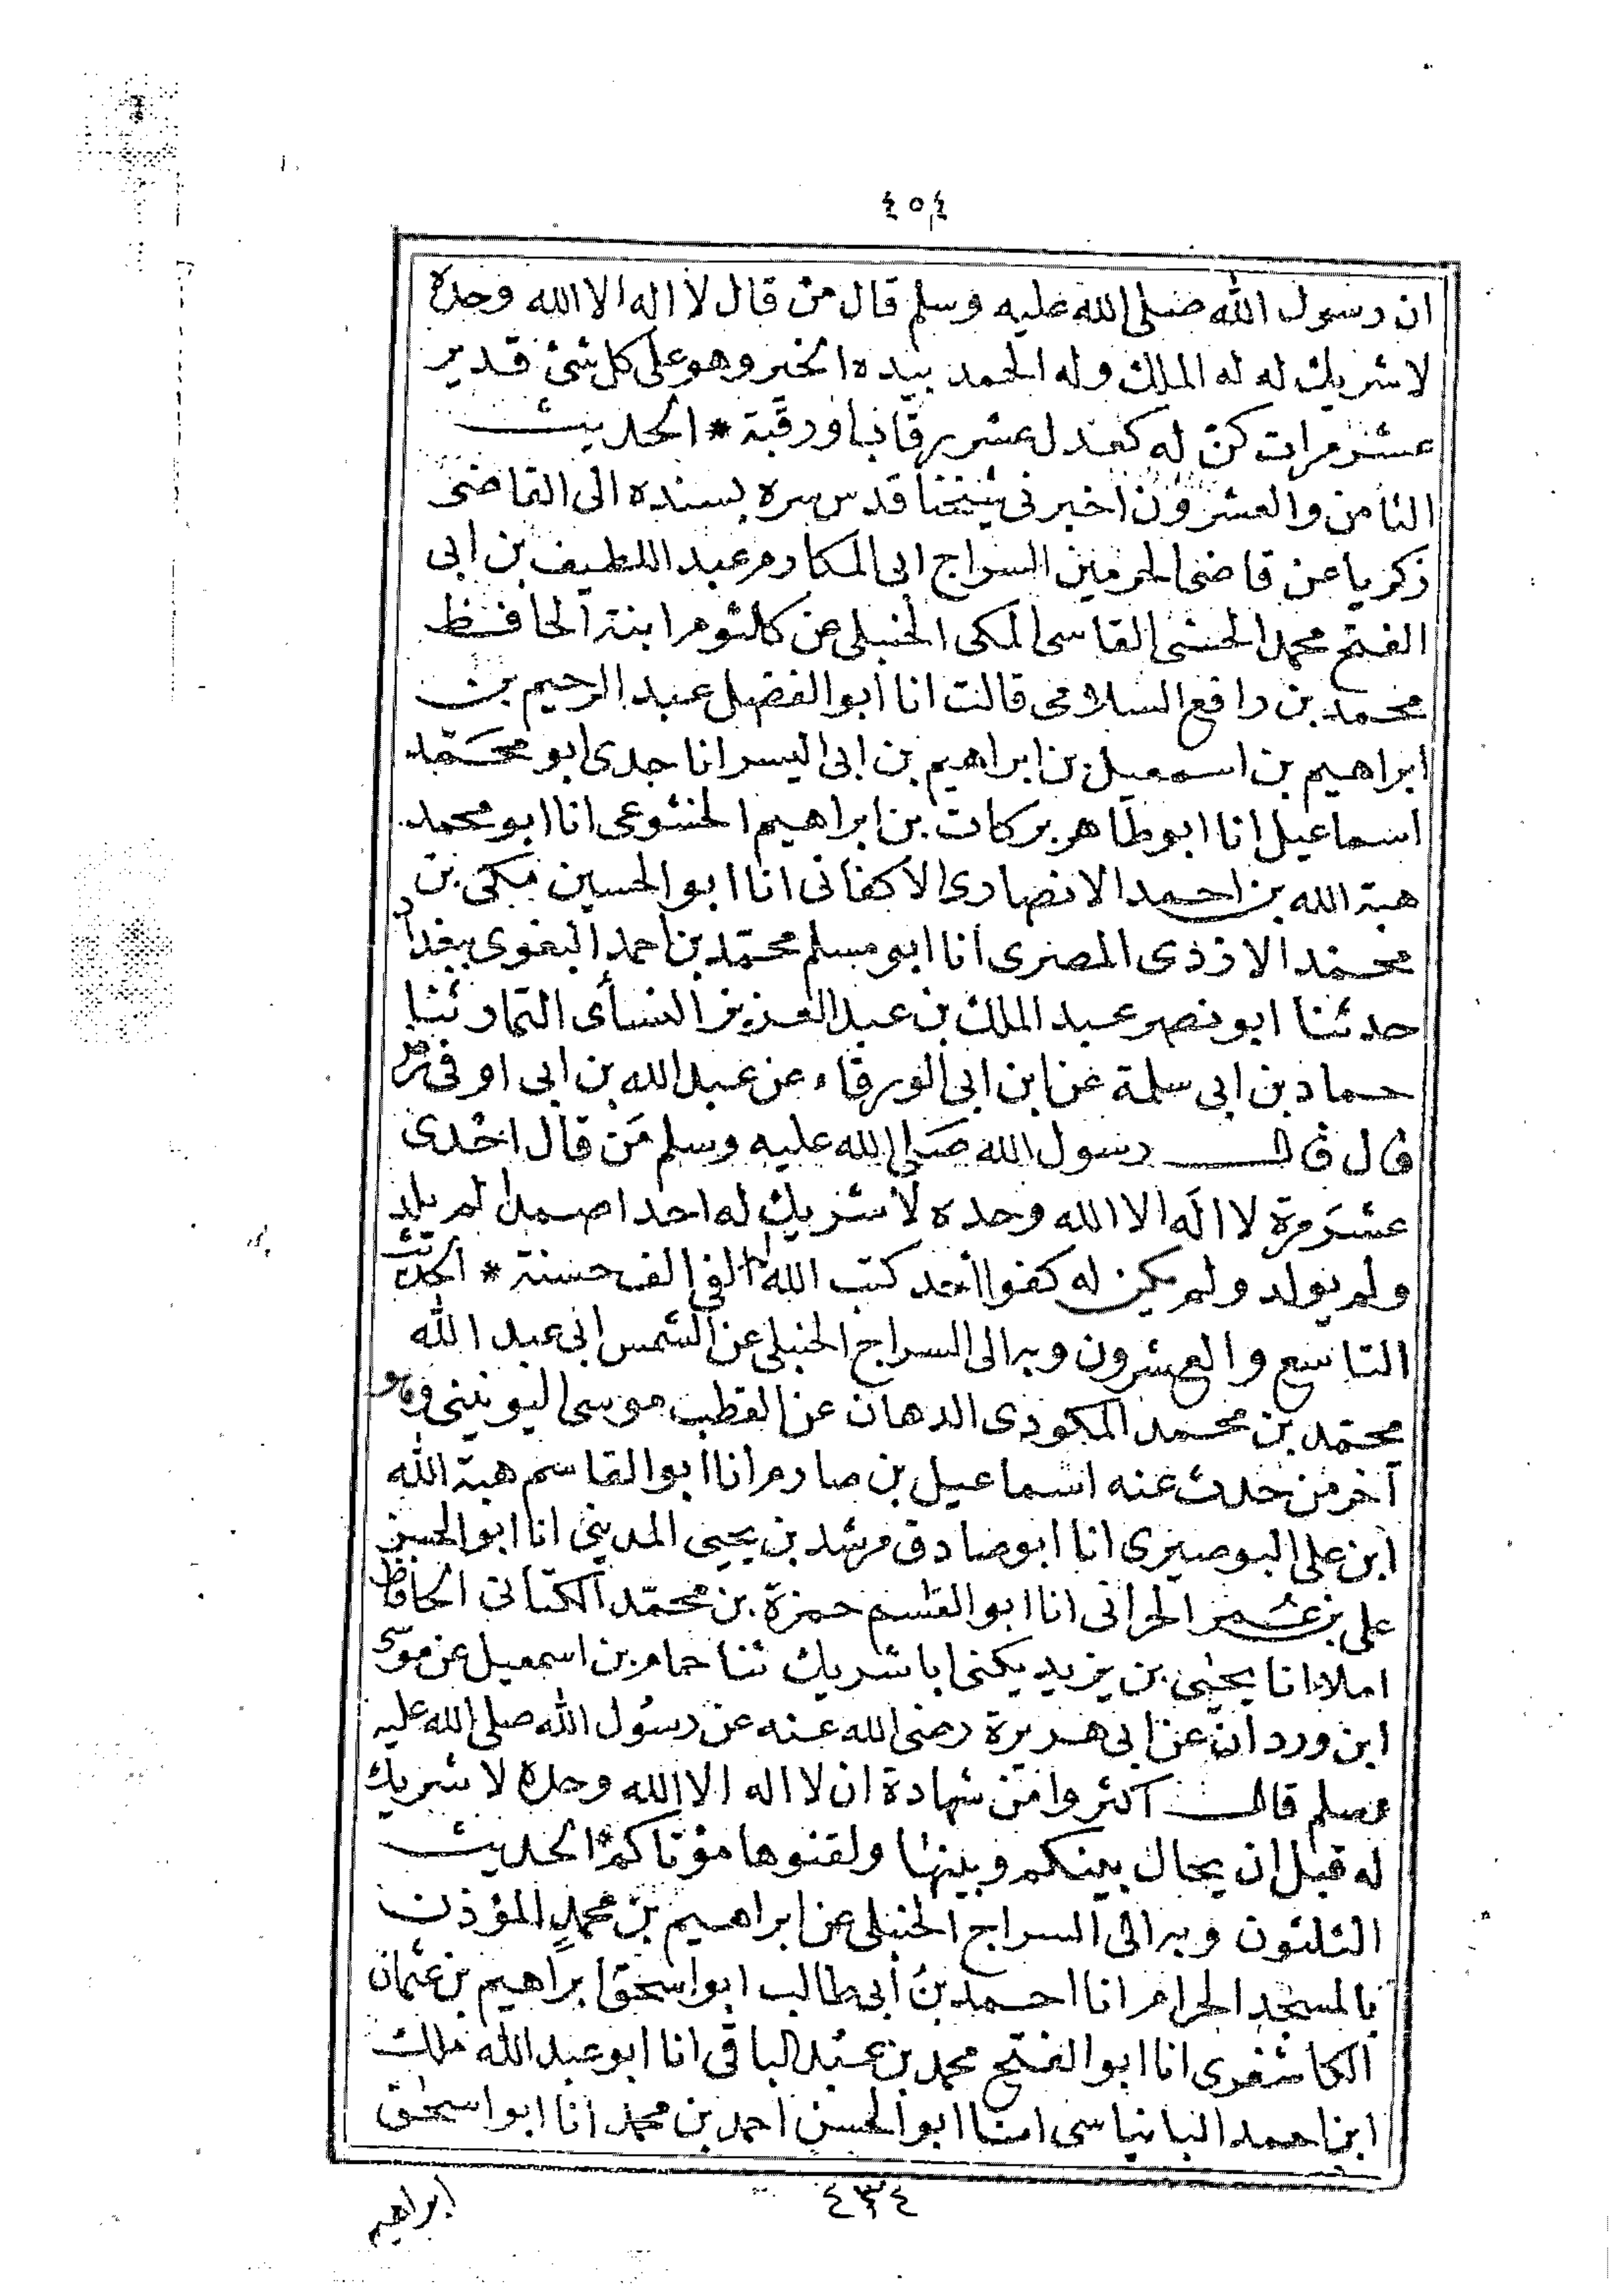 ٤٥٤
ان رسول الله صلى الله عليه وسلم قال من قال لا اله الا الله وحده
لا شريك له له الملك وله الحمد بيده الخير وهو على كل شئ قدير
عشر مرات كن له كعدل عشر رقاب او رقبة * الحديث
الثامن والعشرون اخبرنى شيخنا قدس سره بسنده الى القاضى
زكريا عن قاضى الحرمين السراج ابى المكارم عبد اللطيف بن ابى
الفتح محمد الحسنى الفاسى المكى الحنبلى عن كلثوم ابنة الحافظ
محمد بن رافع السلامى قالت انا ابو الفضل عبد الرحيم بن
ابراهيم بن اسمعيل بن ابراهيم بن ابى اليسر انا جدى ابو محمد
اسماعيل انا ابو طاهر بركات بن ابراهيم الخشوعى انا ابو محمد
هبة الله بن احمد الانصارى الاكفانى انا ابو الحسين مكى بن
محمد الازدى المصرى انا ابو مسلم محمد بن احمد البغوى ببغداد
حدثنا ابو نصر عبد الملك بن عبد العزيز النسأى التمار ثنا
حماد بن ابى سلمة عن ابن ابى الورقاء عن عبد الله بن ابى اوفى رض
قال قال رسول الله صلى الله عليه وسلم من قال احدى
عشر مرة لا اله الا الله وحده لا شريك له احدا صمدا لم يلد
ولم يولد ولم يكن له كفوا احد كتب الله له الفى الف حسنة * الحديث
التاسع والعشرون وبه الى السراج الحنبلى عن الشمس ابى عبد الله
محمد بن محمد المكودى الدهان عن القطب موسى اليونينى وهو
آخر من حدث عنه اسماعيل بن صارم انا ابو القاسم هبة الله
ابن على البوصيرى انا ابو صادق مرشد بن يحيى المدينى انا ابو الحسن
على بن عمر الحرانى انا ابو القاسم حمزة بن محمد الكتانى الحافظ
املاء انا يحيى بن يزيد يكنى ابا شريك ثنا حمام بن اسمعيل عن موسى
ابن وردان عن ابى هريرة رضى الله عنه عن رسول الله صلى الله عليه
وسلم قال اكثروا من شهادة ان لا اله الا الله وحده لا شريك
له قبل ان يحال بينكم وبينها ولقنوها موتاكم * الحديث
الثلثون وبه الى السراج الحنبلى عن ابراهيم بن محمد المؤذن
بالمسجد الحرام انا احمد بن ابى طالب ابو اسحق ابراهيم بن عثمان
الكاشغرى انا ابو الفتح محمد بن عبد الباقى انا ابو عبد الله ملك
ابن احمد البانياسى انا ابو الحسن احمد بن محمد انا ابو اسحق
ابراهيم
٤٣٤